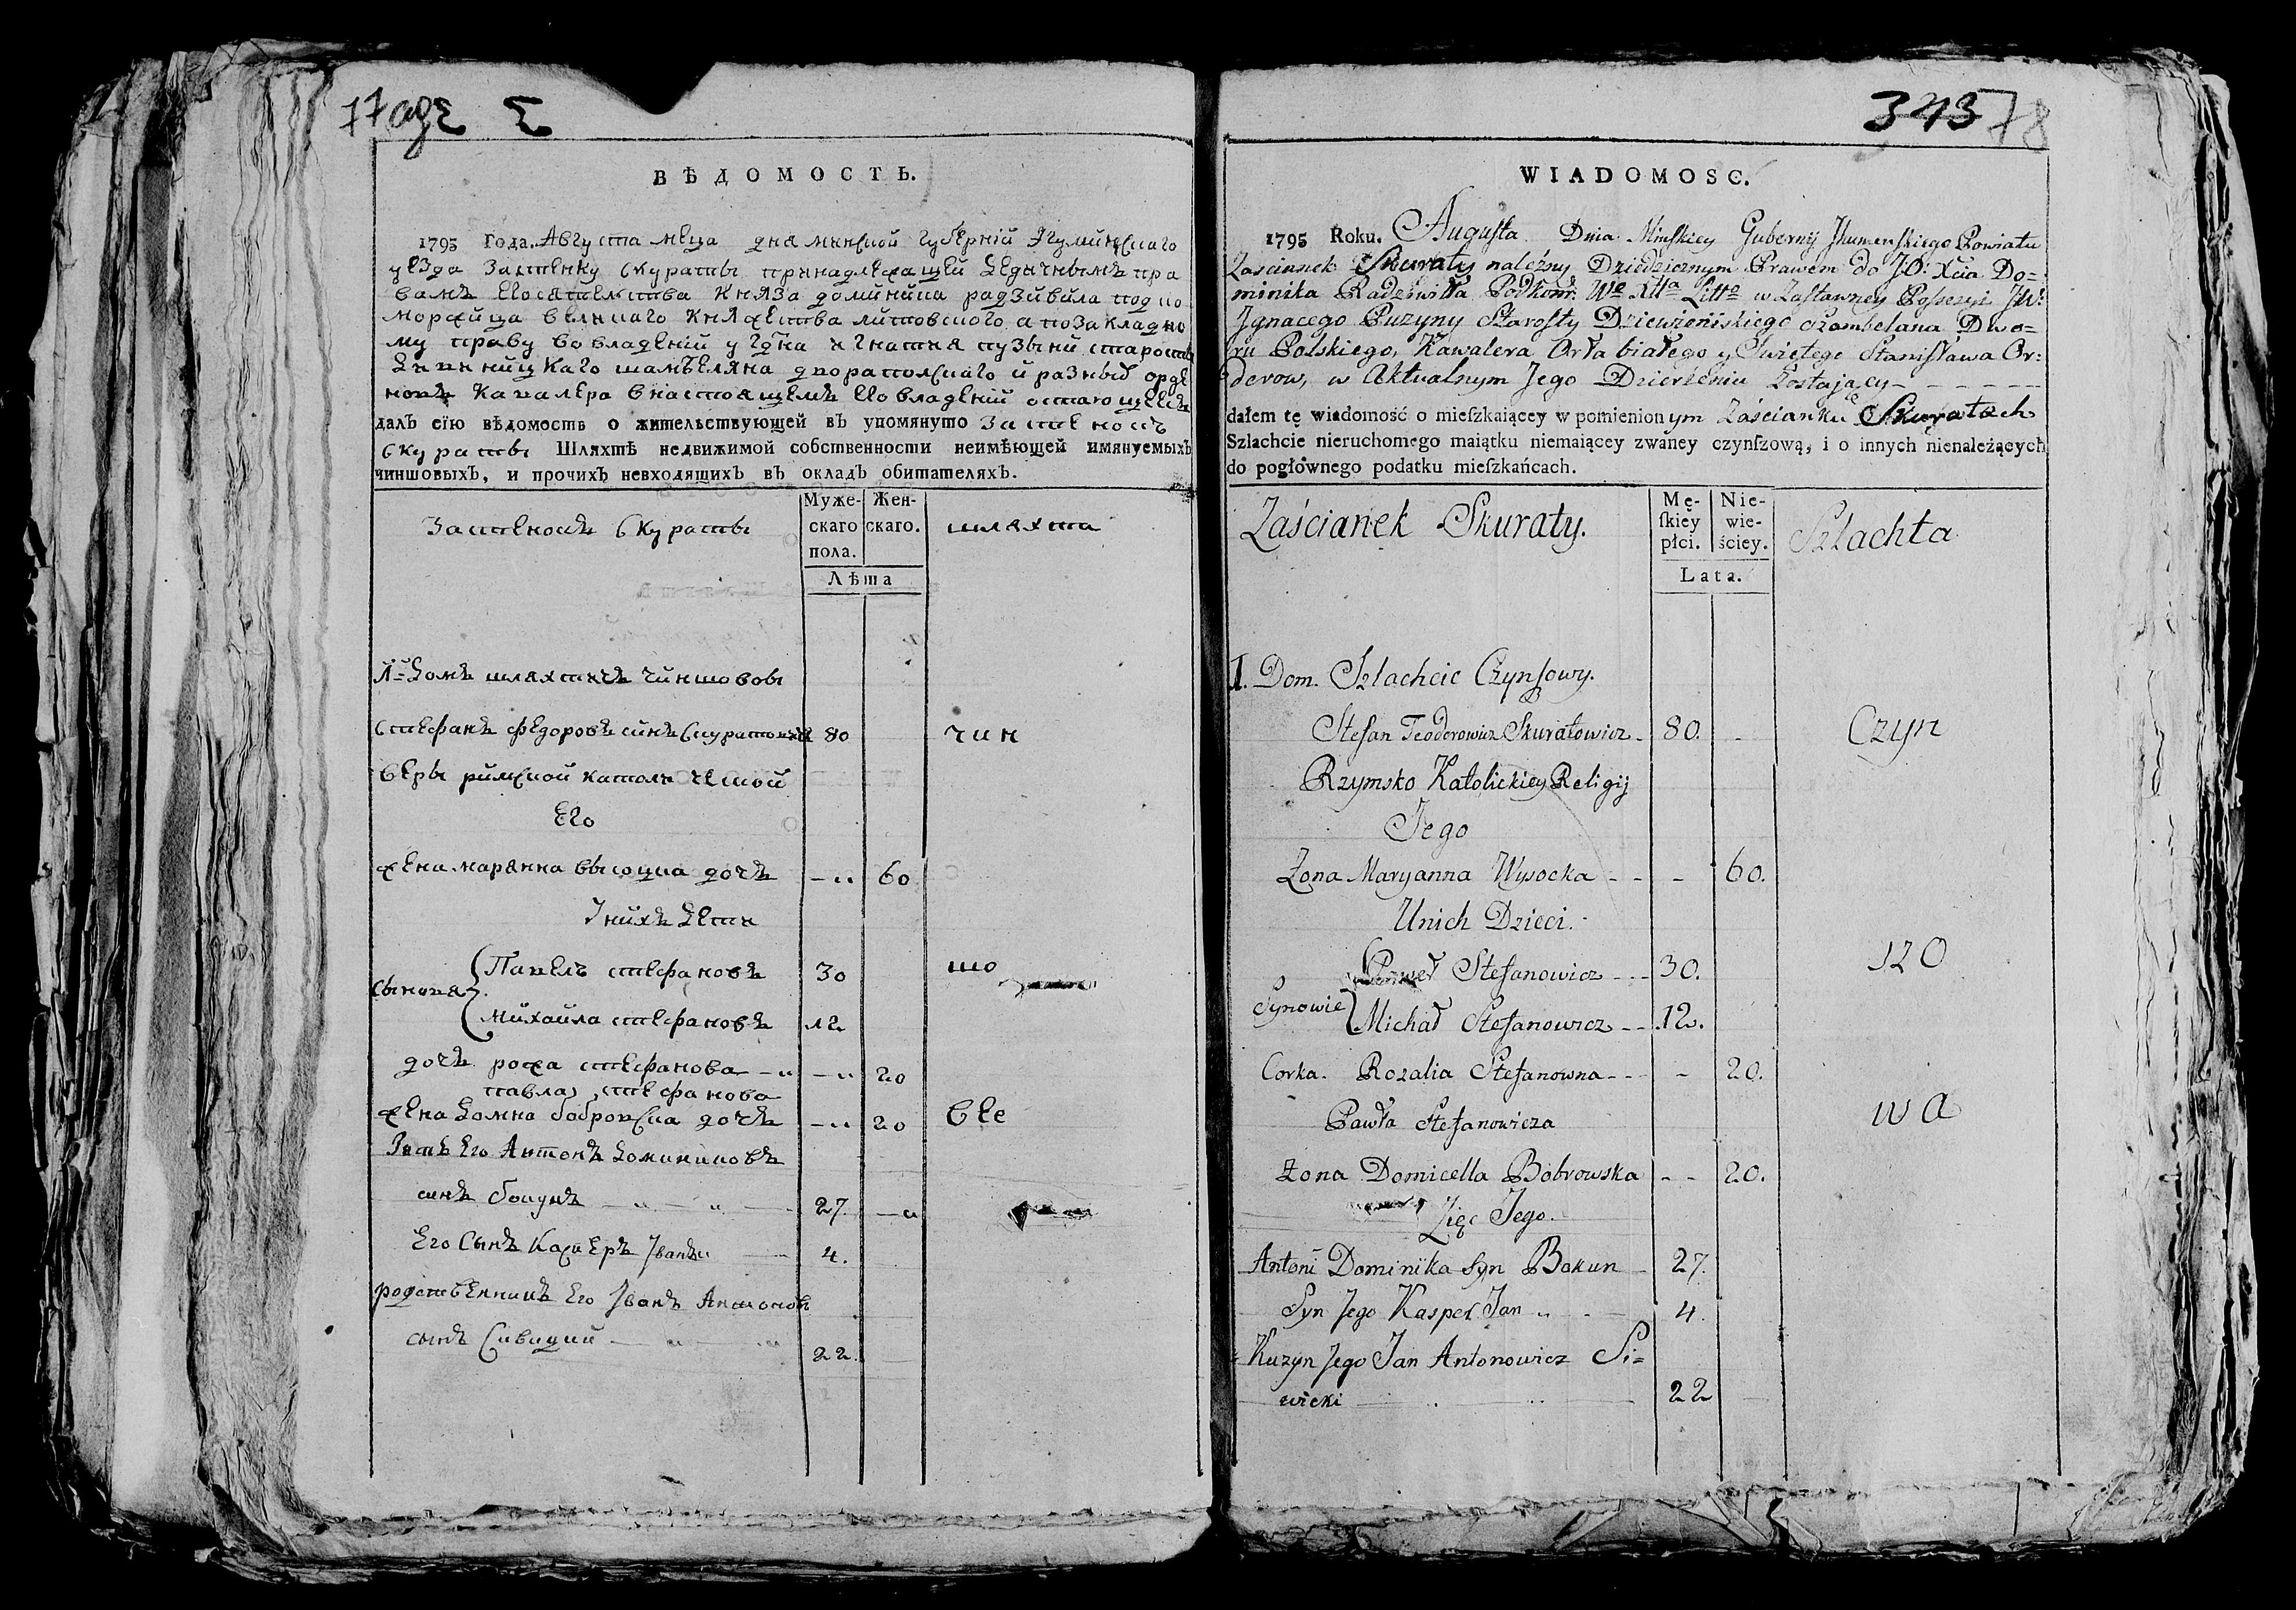 ВѢДОМОСТЬ.
1795 Года. Августа м҃еца дня минской губерніи Игуминскаго
уезда застенку Скураты принадлежащей Дедичнымъ пра
вамъ Его сиятельства Князя доминика радзивила подко
моржица Великаго Княжества литовскаго а по закладно
му праву во владении у Г҃дна игнатия пузыни старосты
шамбеляна двора полскаго и разныхъ орде
новъ Кавалера в настоящемъ Его владении остающейся
далъ сїю вѣдомость о жительствующей въ упомянуто застенокъ
Скураты Шляхтѣ недвижимой собственности неимѣющей имянуемыхъ
чиншовыхъ, и прочихъ невходящихъ въ окладъ обитателяхъ.
Застенокъ Скураты
Муже-
скаго
пола.
Жен-
скаго.
шляхта
Лѣта
1й Домъ шляхтичъ Чиншовы
Стефанъ федоровъ синъ Скуратовичъ 80 чин
Веры римской католической
Его
жена марянна высоцка дочъ — 60
У нихъ Дети
Сыновя { Павелъ стефановъ 30 шо
Михайла стефановъ 12
дочъ рожа стефанова — 20
павла стефанова
жена Домна бобровска дочъ — 20 вее
Зять Его Антонъ Доминиковъ
синъ бокунъ 27 —
Его Сынъ Касперъ Іванъ 4.
родственникъ Его Іванъ Антоновъ
сынъ Сивицкий 22.
343 78
WIADOMOSC.
1795 Roku. Augusta Dnia Minskiey Gubernij Jhumenskiego Powiatu
Zascianek Skuraty należny Dziedzicznym Prawem do JO: Xcia Do=
minika Radziwiłła Podkom: Wo Xtta Litto w Zastawney Possesyi JW:
Jgnacego Puzyny Starosty Dziewieniskiego szambelana Dwo=
ru Polskiego, Kawalera Orła białego y Swiętego Stanisława Or:
derow, w Aktualnym Jego Dzierżeniu Zostający
dałem tę wiadomość o mieſzkaiącey w pomienionym Zaścianku Skuratach
Szlachcie nieruchomego maiątku niemaiącey zwaney czynſzową, i o innych nienależących
do pogłównego podatku mieſzkańcach.
Zaścianek Skuraty.
Mę-
ſkiey
płci.
Nie-
wie-
ściey.
Szlachta
Lata.
1. Dom. Szlachcic Czynſowy.
Stefan Teoderowicz Skuratowicz - 80. - Czyn
Rzymsko Katolickiey Religij
Jego
Zona Maryanna Wysocka - - - 60.
Unich Dzieci.
Synowie { Paweł Stefanowicz - - 30. szo
Michał Stefanowicz - - 12.
Corka. Rozalia Stefanowna - - - 20.
Pawła Stefanowicza wa
Zona Domicella Bobrowska - - 20.
Zięc Jego.
Antoni Dominika Syn Bokun - 27.
Syn Jego Kasper Jan 4.
Kuzyn Jego Jan Antonowicz Si=
wicki 22